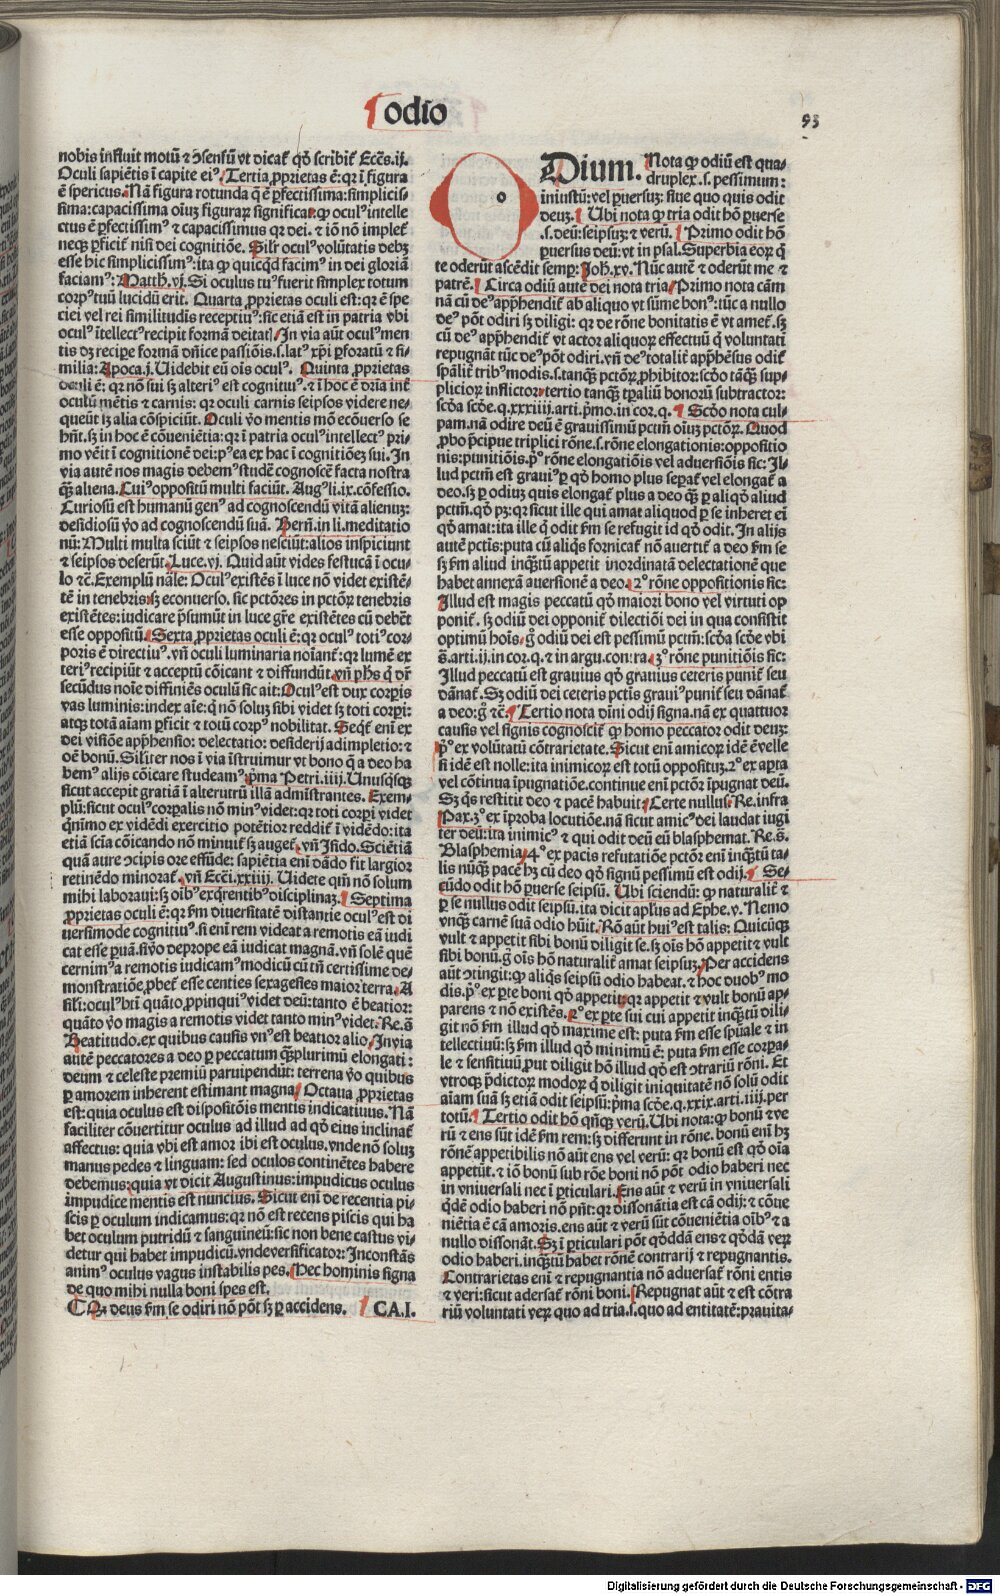 odio
93
nobis influit motū & ꝯsensū vt dicat᷑ qd̛ scribit᷑ Ecc̄s.ij.
Oculi sapiētis ī capite eiꝰ. Tertia ꝓprietas ē: qr ī figura
ē spericus. Nā figura rotunda q̄ ē ꝑfectissima: simplicis
sima: capacissima oīuꝫ figuraꝝ significat ꝙ oculꝰ intelle
ctus ē ꝑfectissimꝰ & capacissimus qꝫ dei. & iō nō implet᷑
neqꝫ ꝑficit᷑ nisi dei cognitiōe. Silr̄ oculꝰ volūtatis debꝫ
esse hic simplicissimꝰ: ita ꝙ quicqͥd facimꝰ in dei gloriā
faciam: Matth.vj. Si oculus tuꝰ fuerit simplex totum
corpꝰ tuū lucidū erit. Quarta ꝓprietas oculi est: qr ē spe
ciei vel rei similitudīs receptiuꝰ: sic etiā est in patria vbi
oculꝰ ītellectꝰ recipit formā deitat᷑. In via aūt oculꝰ men
tis dꝫ recipe formā dn̄ice passiōis.s.latꝰ xp̄i ꝑforatū & si-
milia: Apoca.j. Uidebit eū oīs oculꝰ. Quinta ꝓprietas
oculi ē: qr nō sui sꝫ alteriꝰ est cognituꝰ. & ī hoc ē dr̄ia int᷑
oculū mētis & carnis: qr oculi carnis seipsos videre ne-
queūt iꝫ alia cōspiciūt. Oculi v̄o mentis mō ecōuerso se
hn̄t. sꝫ in hoc ē cōueniētia: qr ī patria oculꝰ intellectꝰ pri-
mo vēit ī cognitionē dei: pꝰea ex hac ī cognitiōeꝫ sui. In
via autē nos magis debemꝰ studē cognoscē facta nostra
q̄ꝫ aliena. Cuiꝰ oppositū multi faciūt. Augꝰ li.ix.cōfessio.
Curiosū est humanū genꝰ ad cognoscendū vitā alienuꝫ:
desidiosū v̄o ad cognoscendū suā. Bern̄. in li. meditatio
nū: Multi multa sciūt & seipsos nesciūt: alios inspiciunt
& seipsos deserūt. Luce.vj. Quid aūt vides festucā ī ocu-
lo &c̄. Exemplū nāle: Oculꝰ existēs ī luce nō videt existē-
tē in tenebris: sꝫ econuerso. sic pctōres in pctōꝝ tenebris
existētes: iudicare p̄sumūt in luce gr̄e existētes cū debēt
esse oppositū. Sexta ꝓprietas oculi ē: qr oculꝰ totiꝰ cor-
poris ē directiuꝰ. vn̄ oculi luminaria noīant᷑: qr lumē ex
teriꝰ recipiūt & acceptū cōicant & diffundūt. vn̄ ph̄s q̄ dr̄
secūdus noīe diffiniēs oculū sic ait: Oculꝰ est dux corꝑis
vas luminis: index aīe: q̄ nō soluꝫ sibi videt sꝫ toti corꝑi:
atqꝫ totā aīam ꝑficit & totū corpꝰ nobilitat. Seqt᷑ enī ex
dei visiōe apprehēsio: delectatio: desiderij adimpletio: &
oē bonū. Siliter nos ī via īstruimur vt bono q̄ a deo ha
bemꝰ alijs cōicare studeamꝰ. pͥma Petri.iiij. Unusqͥsqꝫ
sicut accepit gratiā ī alterutrū illā adm̄istrantes. Exem-
plū: sicut oculꝰ corꝑalis nō minꝰ videt: qr toti corꝑi videt
qͥnīmo ex vidēdi exercitio potētior reddit᷑ ī vidēdo: ita
etiā scīa cōicando nō minuit᷑ sꝫ auget᷑. vn̄ Isido. Sciētiā
quā aure ꝯcipis ore effūde: sapiētia enī dādo fit largior
retinēdo minorat᷑. vn̄ Ecc̄i.xxiiij. Uidete qm̄ nō solum
mihi laboraui: sꝫ oībꝰ exq̄rentibꝰ disciplinaꝫ. Septima
ꝓprietas oculi ē: qr ẜm diuersitatē distantie oculꝰ est di
uersimode cognitiuꝰ. si enī rem videat a remotis eā iudi
cat esse ꝑuā. si v̄o deprope eā iudicat magnā. vn̄ solē quē
cernimꝰ a remotis iudicamꝰ modicū cū tn̄ certissime de-
monstratiōe ꝓbet᷑ esse centies sexagesies maior terra. A
sili: oculꝰ btī quāto ꝓpinquiꝰ videt deū: tanto ē beatior:
quāto v̄o magis a remotis videt tanto minꝰ videt. Re.s̄.
Beatitudo. ex quibus causis vnꝰ est beatior alio. In via
autē peccatores a deo ꝑ peccatum q̄ꝫplurimū elongati:
deum & celeste premiū paruipendūt: terrena v̄o quibus
ꝑ amorem inherent estimant magna. Octaua ꝓprietas
est: quia oculus est dispositōis mentis indicatiuus. Nā
faciliter cōuertitur oculus ad illud ad qd̛ eius inclinat᷑
affectus: quia vbi est amor ibi est oculus. vnde nō soluꝫ
manus pedes & linguam: sed oculos continētes habere
debemus: quia vt dicit Augustinus: impudicus oculus
īmpudice mentis est nuncius. Sicut enī de recentia pi-
scis ꝑ oculum indicamus: qr nō est recens piscis qui ha
bet oculum putridū & sanguineū: sic non bene castus vi-
detur qui habet impudicū. vnde versificator: Inconstās
animꝰ oculus vagus instabilis pes. Hec hominis signa
de quo mihi nulla boni spes est.
Qꝫ deus ẜm se odiri nō pōt sꝫ ꝑ accidens. CA.I.
Odium. Nota ꝙ odiū est qua-
druplex.s.pessimum:
iniustū: vel ꝑuersuꝫ: siue quo quis odit
deuꝫ. Ubi nota ꝙ tria odit hō ꝑuerse
.s.deū: seipsuꝫ: & verū. Primo odit hō
ꝑuersus deū: vt in psal. Superbia eoꝝ q̄
te oderūt ascēdit semꝑ: Joh.xv. Nūc autē & oderūt me &
patrē. Circa odiū autē dei nota tria. Primo nota cām
nā cū deꝰ apprehēdit᷑ ab aliquo vt sūme bonꝰ: tūc a nullo
deꝰ pōt odiri sꝫ diligi: qr de rōne bonitatis ē vt amet᷑. sꝫ
cū deꝰ apprehēdit᷑ vt actor aliquoꝝ effectuū q̄ voluntati
repugnāt tūc deꝰ pōt odiri. vn̄ deꝰ totalit᷑ apprehēsus odit᷑
spālit᷑ tribꝰ modis.s.tanqꝫ pctōꝝ ꝓhibitor: scd̛o tāqꝫ sup-
plicioꝝ inflictor. tertio tanqꝫ tꝑaliū bonoꝝ subtractor:
scd̛a scd̛e.q.xxxiiij.arti.pͥmo.in cor.q. Scd̛o nota cul-
pam. nā odire deū ē grauissimū pctm̄ oīuꝫ pctōꝝ. Quod
ꝓbo p̄cipue triplici rōne.s.rōne elongationis: oppositio
nis: punitiōis. pͦ rōne elongatiōis vel aduersiōis sic: Il-
lud pctm̄ est grauiꝰ ꝑ qd̛ homo plus seꝑat᷑ vel elongat᷑ a
deo. sꝫ ꝑ odiuꝫ quis elongat᷑ plus a deo q̄ꝫ ꝑ aliqd̛ aliud
pctm̄. qd̛ pꝫ: qr sicut ille qui amat aliquod ꝑ se inheret ei
qd̛ amat: ita ille q̄ odit ẜm se refugit id qd̛ odit. In alijs
autē pctīs: puta cū aliqͥs fornicat᷑ nō auertit᷑ a deo ẜm se
sꝫ ẜm aliud inqͣtū appetit inordinatā delectationē que
habet annexā auersionē a deo. 2ͦ rōne oppositionis sic:
Illud est magis peccatū qd̛ maiori bono vel virtuti op
ponit᷑. sꝫ odiū dei opponit᷑ dilectiōi dei in qua consistit
optimū hoīs. gͦ odiū dei est pessimū pctm̄: scd̛a scd̛e vbi
s̄.arti.ij.in cor.q.& in argu.con.ra. 3ͦ rōne punitiōis sic:
Illud peccatū est grauius qd̛ grauius ceteris punit᷑ seu
dānat᷑. Sꝫ odiū dei ceteris pctīs grauiꝰ punit᷑ seu dānat᷑
a deo: gͦ &c̄. Tertio nota dīni odij signa. nā ex quattuor
causis vel signis cognoscit᷑ ꝙ homo peccator odit deuꝫ:
pͦ ex volūtatū cōtrarietate. Sicut enī amicoꝝ idē ē velle
si idē est nolle: ita inimicoꝝ est totū oppositū. 2ͦ ex apta
vel cōtinua īpugnatiōe. continue enī pctōꝝ īpugnat deū.
Sꝫ qͥs restitit deo & pacē habuit: Certe nullus. Re.infra
Pax. 3ͦ ex īproba locutiōe. nā sicut amicꝰ dei laudat iugi
ter deū: ita inimicꝰ & qui odit deū eū blasphemat. Re.s̄.
Blasphemia. 4ͦ ex pacis refutatiōe pctōꝝ enī inqͣtū ta-
lis nūqͣꝫ pacē hꝫ cū deo qd̛ signū pessimū est odij. Se-
cūdo odit hō ꝑuerse seipsū. Ubi sciendū: ꝙ naturalit᷑ &
ꝑ se nullus odit seipsū. ita dicit apl̄us ad Ephe.v. Nemo
vnqͣꝫ carnē suā odio hūit. Rō aūt huiꝰ est talis: Quicūqꝫ
vult & appetit sibi bonū diligit se. sꝫ oīs hō appetit & vult
sibi bonū. gͦ oīs hō naturalit᷑ amat seipsuꝫ. Per accidens
aūt ꝯtingit: ꝙ aliqͥs seipsū odio habeat. & hoc duobꝰ mo
dis. pͦ ex ꝑte boni qd̛ appetit. qr appetit & vult bonū ap-
parens & nō existēs. 2ͦ ex ꝑte sui cui appetit inqͣtū dili-
git nō ẜm illud qd̛ maxime est: puta ẜm esse sp̄uale & in
tellectiuū: sꝫ ẜm illud qd̛ minimū ē: puta ẜm esse corꝑa-
le & sensitiuū ꝓut diligit hō illud qd̛ est ꝯtrariū rōni. Et
vtroqꝫ p̄dictoꝝ modoꝝ q̄ diligit iniquitatē nō solū odit
aīam suā sꝫ etiā odit seipsū: pͥma scd̛e.q.xxix.arti.iiij.per
totū. Tertio odit hō qn̄qꝫ verū. Ubi nota: ꝙ bonū & ve
rū & ens sūt idē ẜm rem: sꝫ differunt in rōne. bonū enī hꝫ
rōnē appetibilis nō aūt ens vel verū: qr bonū est qd̛ oīa
appetūt. & iō bonū sub rōe boni nō pōt odio haberi nec
in vniuersali nec ī ꝑticulari. Ens aūt & verū in vniuersali
qͥdē odio haberi nō pn̄t: qr dissonātia est cā odij: & cōue
niētia ē cā amoris. ens aūt & verū sūt cōueniētia oībꝰ & a
nullo dissonāt. Sꝫ ī ꝑticulari pōt qd̛dā ens & qd̛dā veꝝ
odio haberi. inqͣtū habet rōnē contrarij & repugnantis.
Contrarietas enī & repugnantia nō aduersat᷑ rōni entis
& veri: sicut adersat᷑ rōni boni. Repugnat aūt & est cōtra
riū voluntati veꝝ quo ad tria.s.quo ad entitatē: prauita-
Digitalisierung gefördert durch die Deutsche Forschungsgemeinschaft - DFG